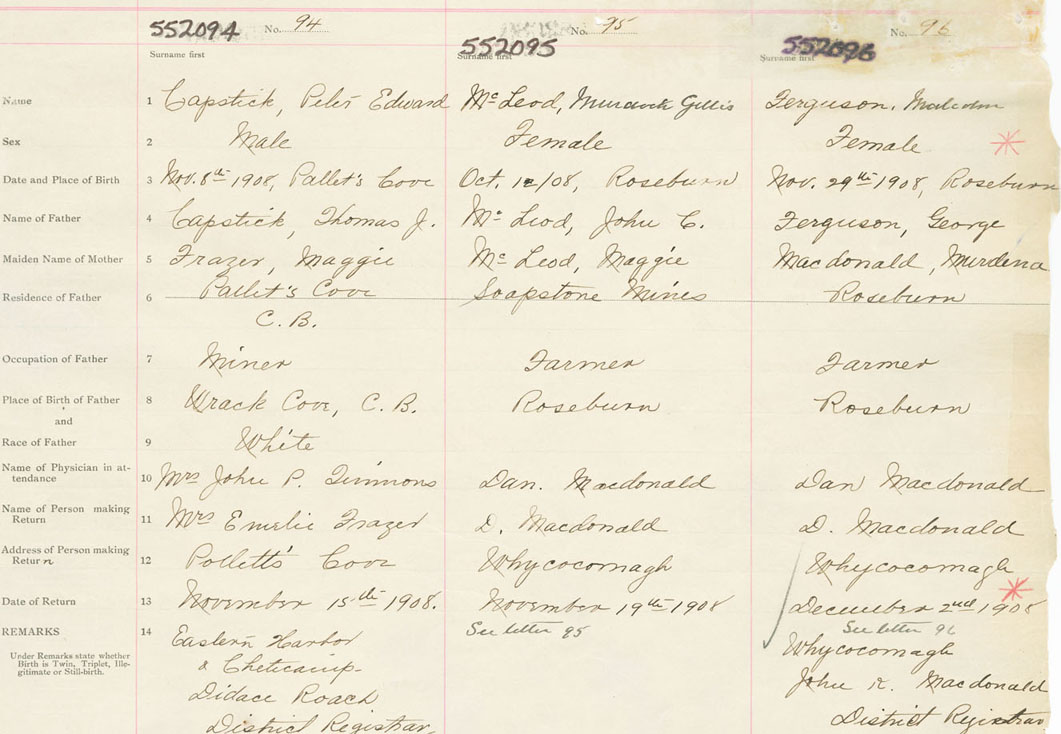 552094 No. 94 552095 No. 95 552096 No. 96
Surname first Surname first Surname first
Name 1 Capstick, Peter Edward Mc Leod, Murdock Gillis Ferguson, Malcolm
Sex 2 Male Female Female
Date and Place of Birth 3 Nov. 8th 1908, Pallet's Cove Oct. /08, Roseburn Nov. 29th 1908, Roseburn
Name of Father 4 Capstick, Thomas J. Mc Leod, John C. Ferguson, George
Maiden Name of Mother 5 Frazer, Maggie Mc Leod, Maggie Macdonald, Murdena
Residence of Father 6 Pallet's Cove Soapstone Mines Roseburn
C. B.
Occupation of Father 7 Miner Farmer Farmer
Place of Birth of Father 8 Wrack Cove, C. B. Roseburn Roseburn
and
Race of Father 9 White
Name of Physician in at-
tendance 10 Mrs John P. Timmons Dan. Macdonald Dan Macdonald
Name of Person making
Return 11 Mrs Emelie Frazer D. Macdonald D. Macdonald
Address of Person making
Return 12 Pollett's Cove Whycocomagh Whycocomagh
Date of Return 13 November 15th 1908. November 19th 1908 December 2nd 1908
REMARKS 14 Eastern Harbor See letter 95 See letter 96
Under Remarks state whether
Birth is Twin, Triplet, Ille-
gitimate or Still-birth.
& Cheticamp. Whycocomagh
Didace Roach John K. Macdonald
District Registrar, District Registrar